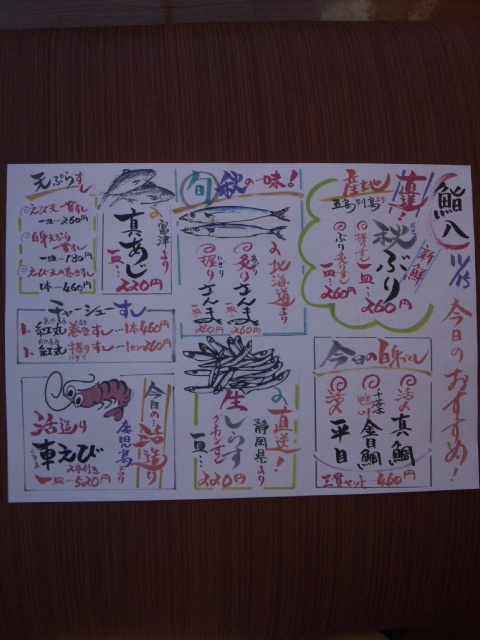 鮨八
11/15
今日のおすすめ！
産地直送！
五島列島より
新鮮
秋ぶり
握りすし
一皿…260円
ぶり炙りすし
一皿…260円
今日の白身すし
活〆真鯛
千葉
金目鯛
活〆平目
三貫セット…460円
旬秋の一味！
北海道より
炙りさんま
260円
握りさんま
260円
直送！
静岡県より
生しらす
ぐんかんすし
一皿…
220円
富津より
真あじ
一皿…
220円
今日の活造り
鹿児島より
活造り
車えび
一皿…520円
天ぷらすし
えび天一貫すし
一皿…260円
白身天ぷら一貫すし
一皿…130円
えび天の巻きすし
1本…460円
チャーシューすし
1、紅丸巻きすし…1本460円
1、紅丸握りすし…1カン260円